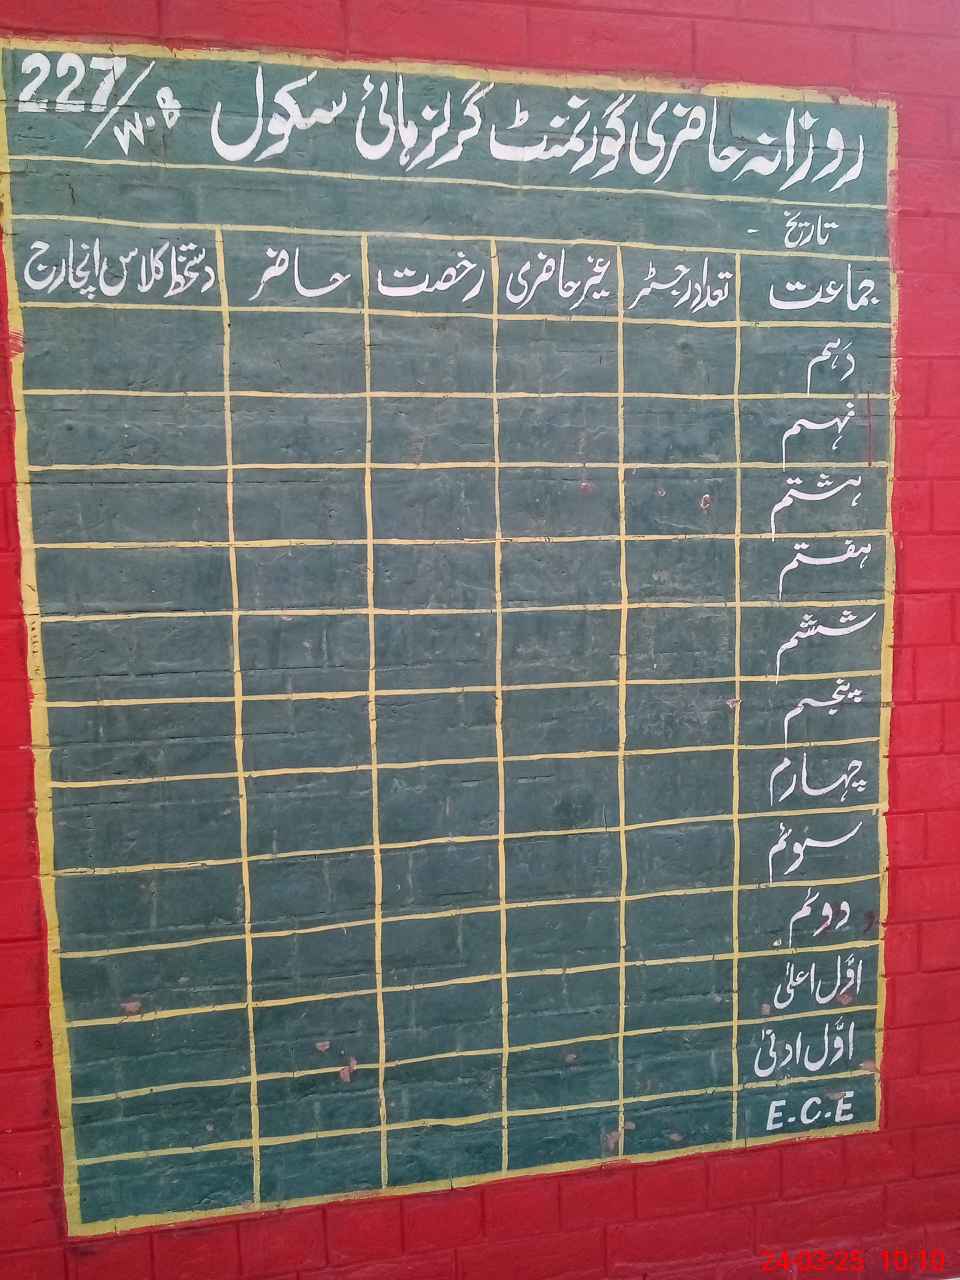 روزانہ حاضری گورنمنٹ گرلز ہائی سکول 227/W.B
تاریخ -
جماعت تعداد رجسٹر غیر حاضری رخصت حاضر دستخط کلاس انچارج
دہم
نہم
ہشتم
ہفتم
ششم
پنجم
چہارم
سوئم
دوئم
اوّل اعلیٰ
اوّل ادنیٰ
E-C-E
24-03-25 10:10